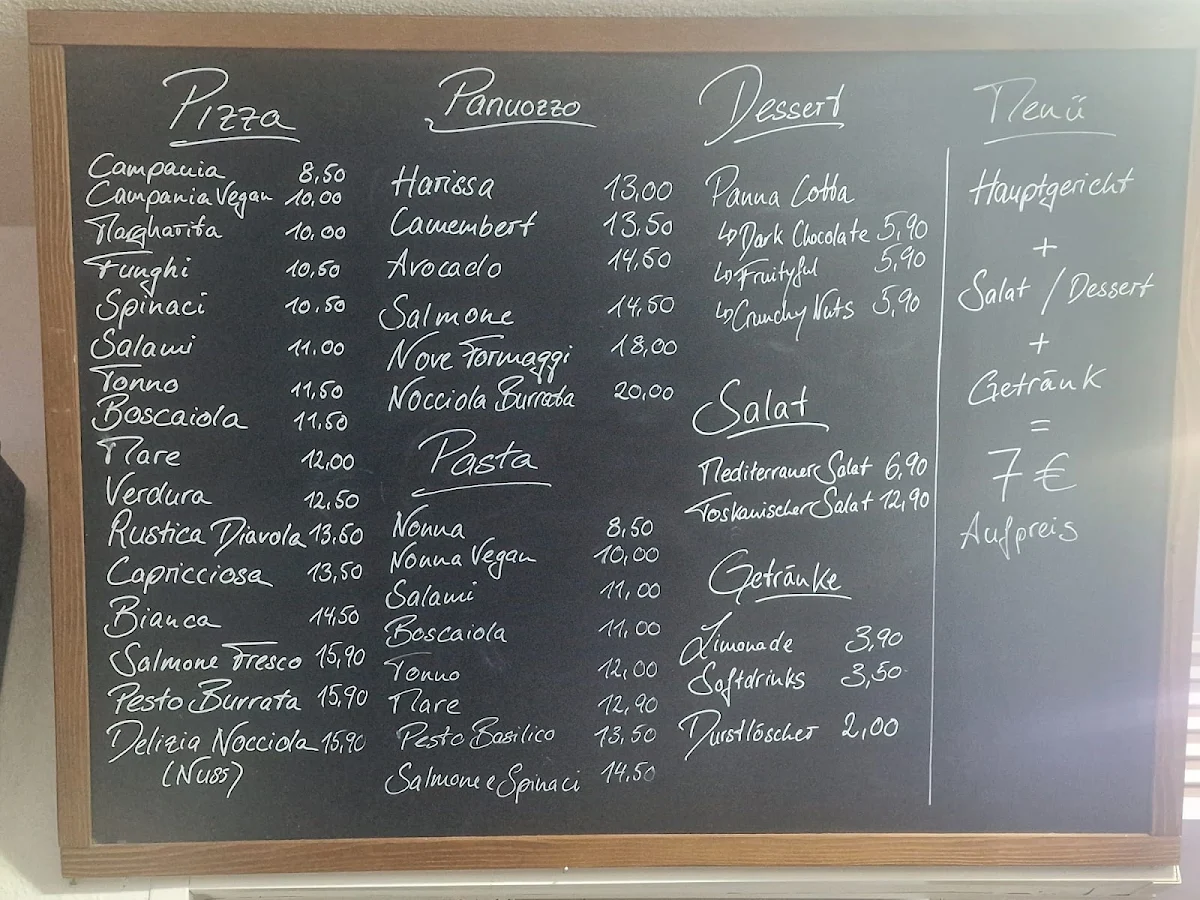 Pizza
Campania 8,50
Campania Vegan 10,00
Margharita 10,00
Funghi 10,50
Spinaci 10,50
Salami 11,00
Tonno 11,50
Boscaiola 11,50
Mare 12,00
Verdura 12,50
Rustica Diavola 13,50
Capricciosa 13,50
Bianca 14,50
Salmone Fresco 15,90
Pesto Burrata 15,90
Delizia Nocciola 15,90
(Nuss)
Panuozzo
Harissa 13,00
Camembert 13,50
Avocado 14,50
Salmone 14,50
Nove Formaggi 18,00
Nocciola Burrata 20,00
Pasta
Nonna 8,50
Nonna Vegan 10,00
Salami 11,00
Boscaiola 11,00
Tonno 12,00
Mare 12,90
Pesto Basilico 13,50
Salmone e Spinaci 14,50
Dessert
Panna Cotta
↳ Dark Chocolate 5,90
↳ Fruityful 5,90
↳ Crunchy Nuts 5,90
Salat
Mediterraner Salat 6,90
Toskanischer Salat 12,90
Getränke
Limonade 3,90
Softdrinks 3,50
Durstlöscher 2,00
Menü
Hauptgericht
+
Salat / Dessert
+
Getränk
=
7 €
Aufpreis